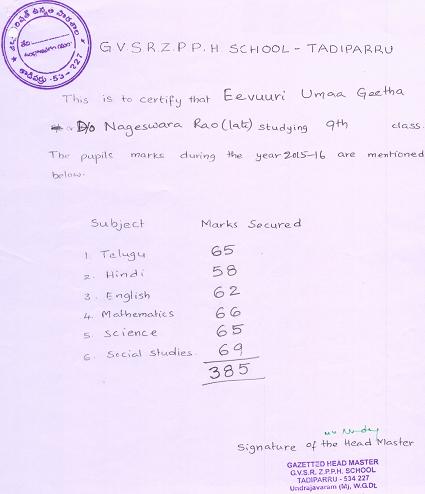 G.V.S.R.Z.P.P.H SCHOOL - TADIPARRU
This is to certify that Eevuuri Umaa Geetha
D/o Nageswara Rao (late) studying 9th class.
The pupils marks during the year 2015-16 are mentioned
below.
Subject Marks Secured
1. Telugu 65
2. Hindi 58
3. English 62
4. Mathematics 66
5. Science 65
6. Social Studies 69
385
Signature of the Head Master
GAZETTED HEAD MASTER
G.V.S.R. Z.P.P.H. SCHOOL
TADIPARRU - 534 227
Undrajavaram (M), W.G.Dt.